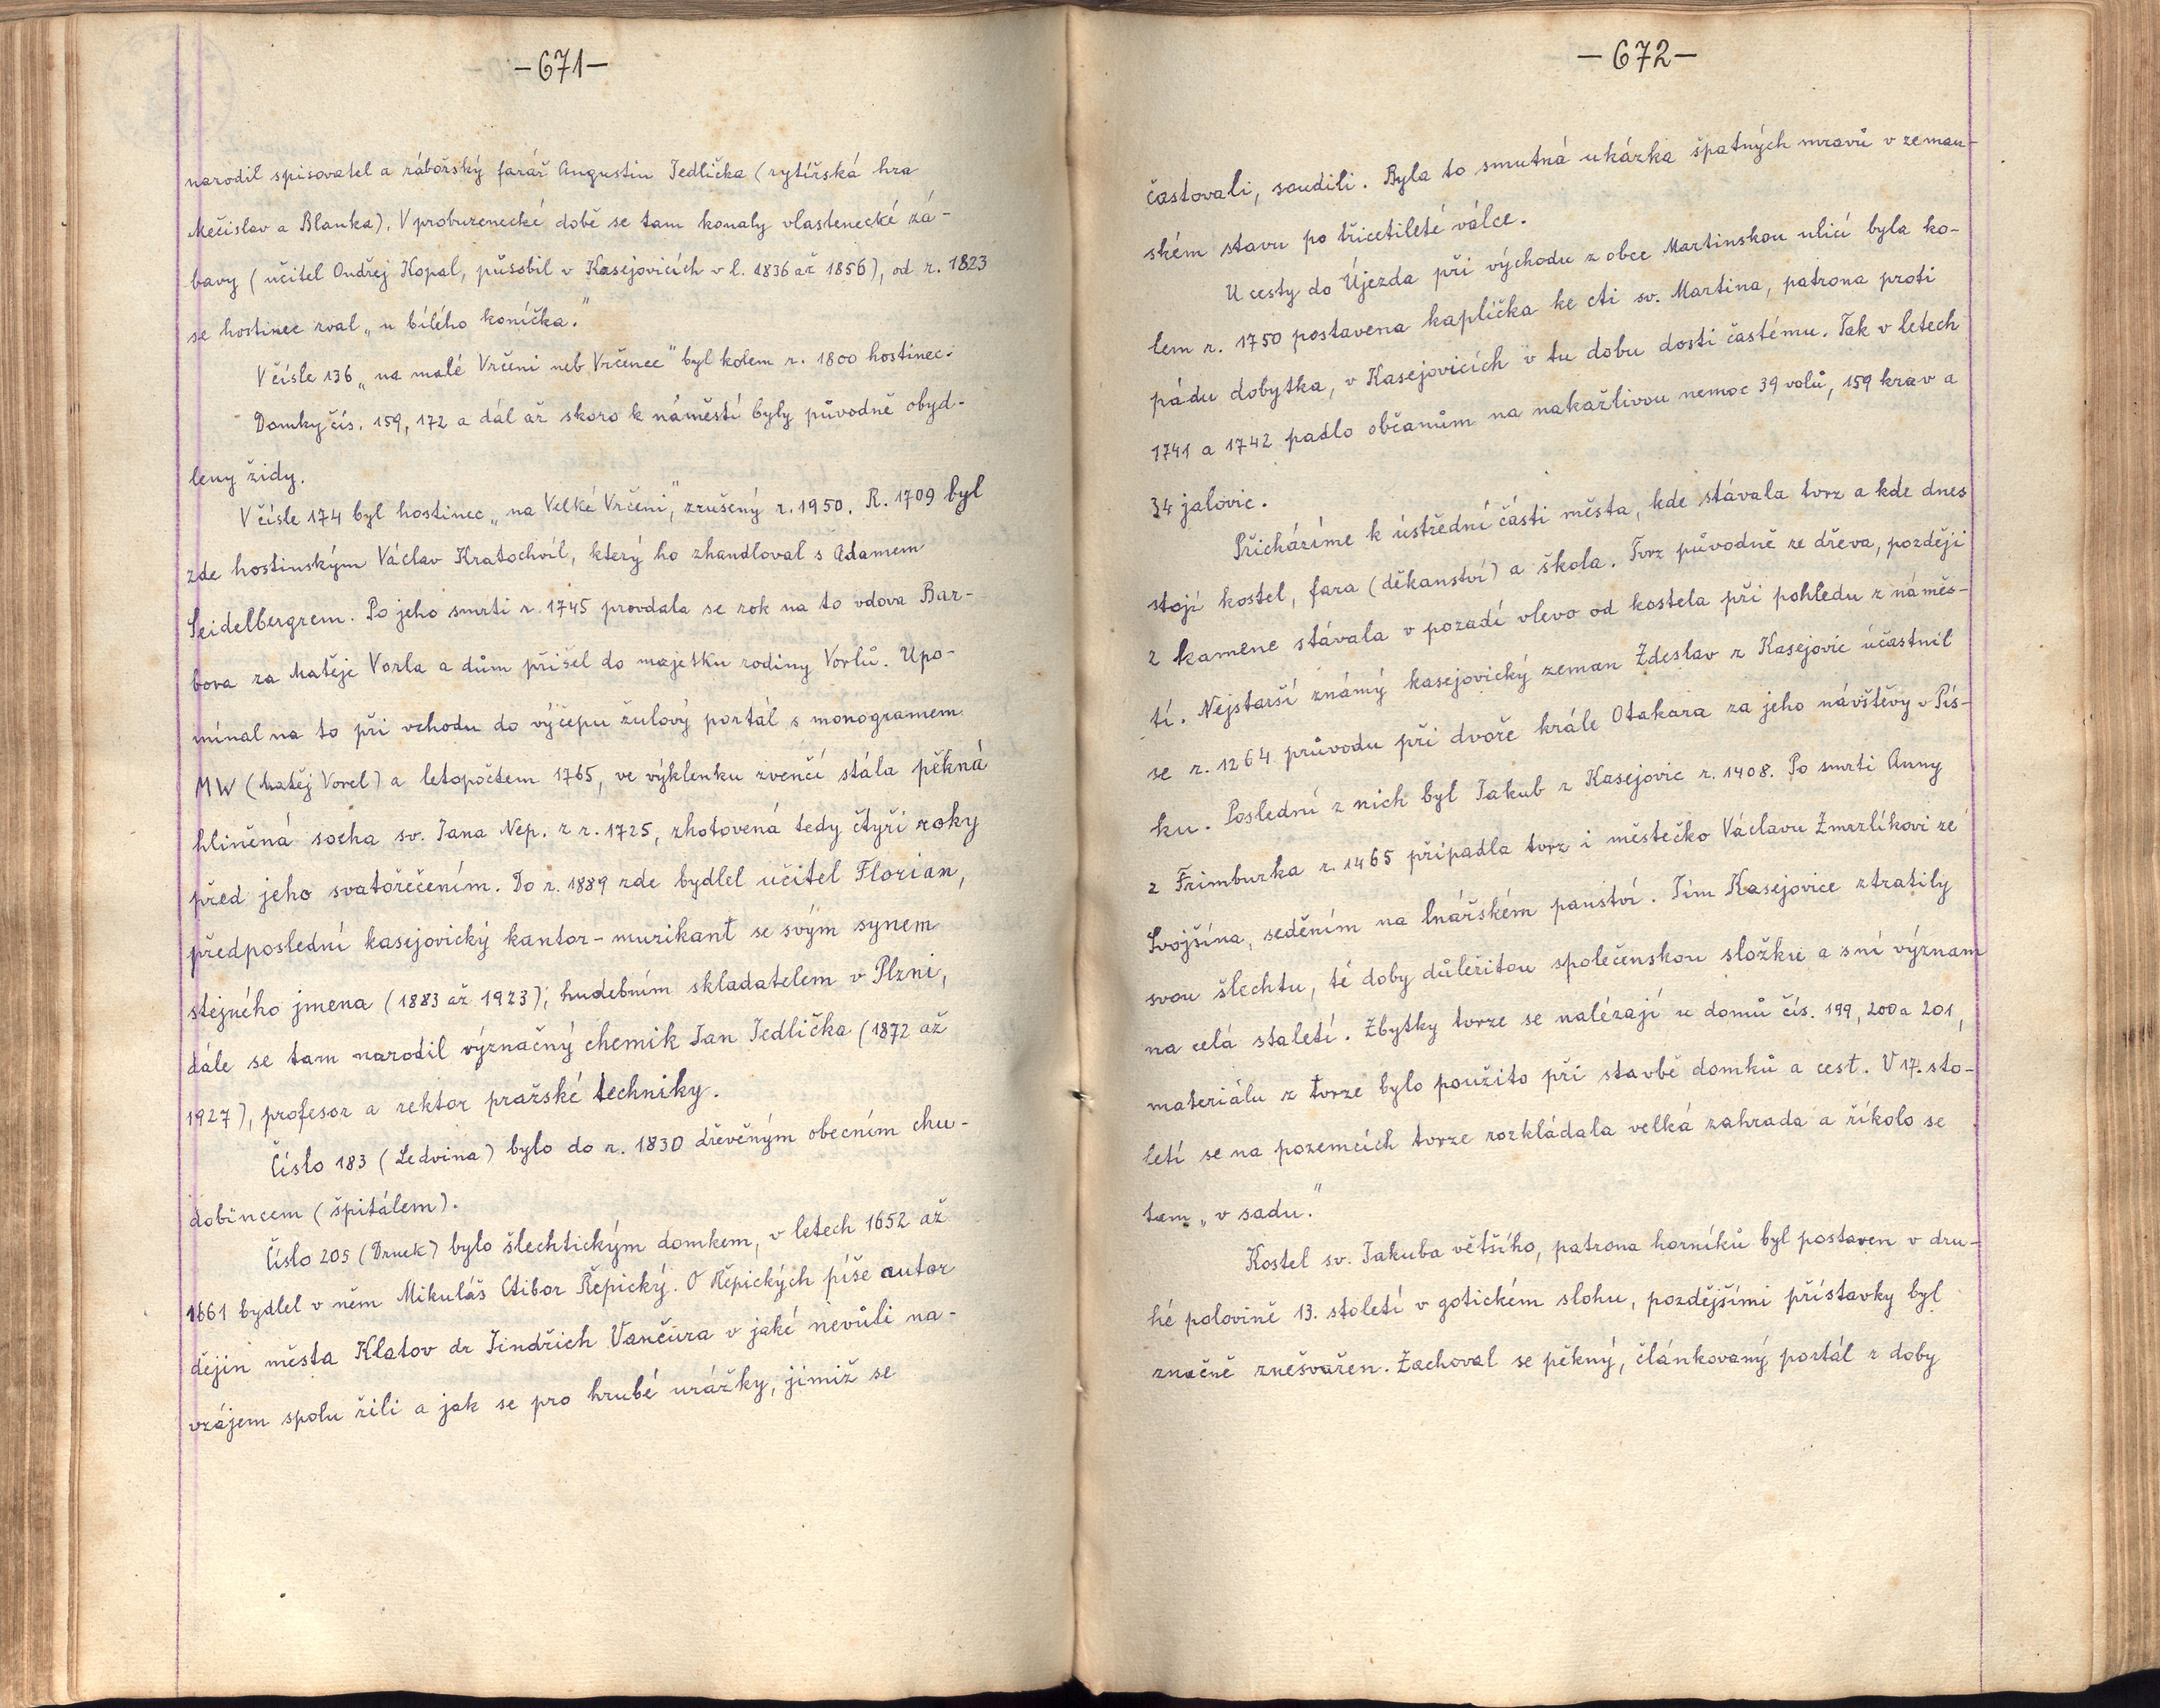 -671-
narodil spisovatel a zábořský farář Augustin Jedlička (rytířská hra
Mečislav a Blanka). V probuzenecké době se tam konaly vlastenecké zá-
bavy (učitel Ondřej Kopal, působil v Kasejovicích v l. 1836 až 1856), od r. 1823
se hostinec zval „u bílého koníčka."
V čísle 136 „na malé Vrčeni neb Vrčence" byl kolem r. 1800 hostinec.
Domky čís. 159, 172 a dál až skoro k náměstí byly původně obyd-
leny židy.
V čísle 174 byl hostinec „na Velké Vrčeni", zrušený r. 1950. R. 1709 byl
zde hostinským Václav Kratochvíl, který ho zhandloval s Adamem
Seidelbergrem. Po jeho smrti r. 1745 provdala se rok na to vdova Bar-
bora za Matěje Vorla a dům přišel do majetku rodiny Vorlů. Upo-
mínal na to při vchodu do výčepu žulový portál s monogramem
MW (Matěj Vorel) a letopočtem 1765, ve výklenku zvenčí stála pěkná
hliněná socha sv. Jana Nep. z r. 1725, zhotovená tedy čtyři roky
před jeho svatořečením. Do r. 1889 zde bydlel učitel Florian,
předposlední kasejovický kantor-muzikant se svým synem
stejného jmena (1883 až 1923), hudebním skladatelem v Plzni,
dále se tam narodil význačný chemik Jan Jedlička (1872 až
1927), profesor a rektor pražské techniky.
Číslo 183 (Ledvina) bylo do r. 1830 dřevěným obecním chu-
dobincem (špitálem).
Číslo 205 (Drnek) bylo šlechtickým domkem, v letech 1652 až
1661 bydlel v něm Mikuláš Ctibor Řepický. O Řepických píše autor
dějin města Klatov dr Jindřich Vančura v jaké nevůli na-
vzájem spolu žili a jak se pro hrubé urážky, jimiž se
-672-
častovali, soudili. Byla to smutná ukázka špatných mravů v zeman-
ském stavu po třicetileté válce.
U cesty do Újezda při východu z obce Martinskou ulicí byla ko-
lem r. 1750 postavena kaplička ke cti sv. Martina, patrona proti
pádu dobytka, v Kasejovicích v tu dobu dosti častému. Tak v letech
1741 a 1742 padlo občanům na nakažlivou nemoc 39 volů, 159 krav a
34 jalovic.
Přicházíme k ústřední části města, kde stávala tvrz a kde dnes
stojí kostel, fara (děkanství) a škola. Tvrz původně ze dřeva, později
z kamene stávala v pozadí vlevo od kostela při pohledu z náměs-
tí. Nejstarší známý kasejovický zeman Zdeslav z Kasejovic účastnil
se r. 1264 průvodu při dvoře krále Otakara za jeho návštěvy v Pís-
ku. Poslední z nich byl Jakub z Kasejovic r. 1408. Po smrti Anny
z Frimburka r. 1465 připadla tvrz i městečko Václavu Zmrzlíkovi ze
Svojšína, seděním na lnářském panství. Tím Kasejovice ztratily
svou šlechtu, té doby důležitou společenskou složku a s ní význam
na celá staletí. Zbytky tvrze se nalézají u domů čís. 199, 200 a 201,
materiálu z tvrze bylo použito při stavbě domků a cest. V 17. sto-
letí se na pozemcích tvrze rozkládala velká zahrada a říkalo se
tam „v sadu."
Kostel sv. Jakuba většího, patrona horníků byl postaven v dru-
hé polovině 13. století v gotickém slohu, pozdějšími přístavky byl
značně znešvařen. Zachoval se pěkný, článkovaný portál z doby